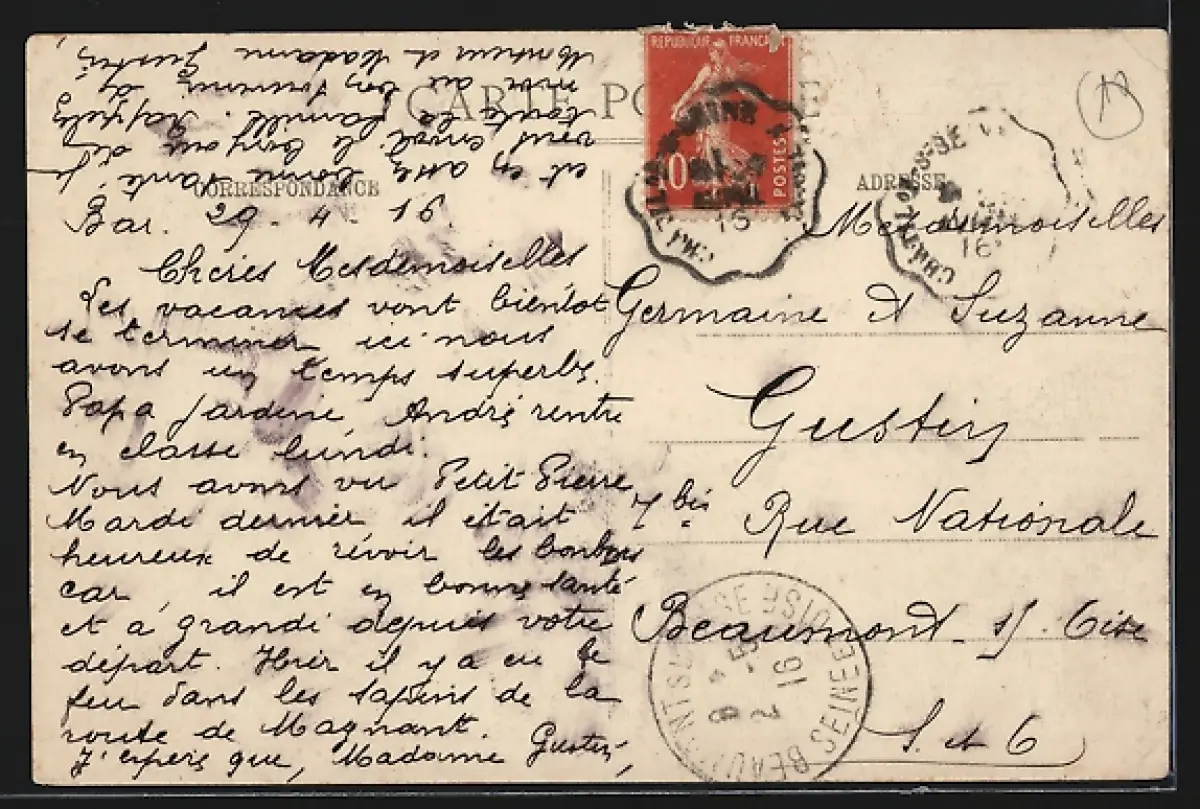 CARTE POSTALE
CORRESPONDANCE
ADRESSE
REPUBLIQUE FRANCAISE
10
POSTES
Bar. 29. 4. 16
Chères Mesdemoiselles
Les vacances vont bientot
se terminer ici nous
avons un temps superbe.
Papa jardine, André rentre
en classe lundi.
Nous avons vu Petit Pierre
Mardi dernier il était
heureux de révoir les bonbons
car il est en bonne santé
et à grandi depuis votre
départ. Hier il y a eu le
feu dans les sapins de la
route de Magnant.
J'espère que, Madame Gustin,
est en bonne santé, je
toute la famille. Rappelez
moi au bon souvenir de
Monsieur et Madame Gustin,
Mesdemoiselles
Germaine et Suzanne
Gustin
7 bis Rue Nationale
Beaumont s/. Oise
S. et O
CHATILLON-S-SEINE
16
CHATILLON-S-SE
16
BEAUMONT-S-OISE SEINE-ET-OISE
2 -5
16